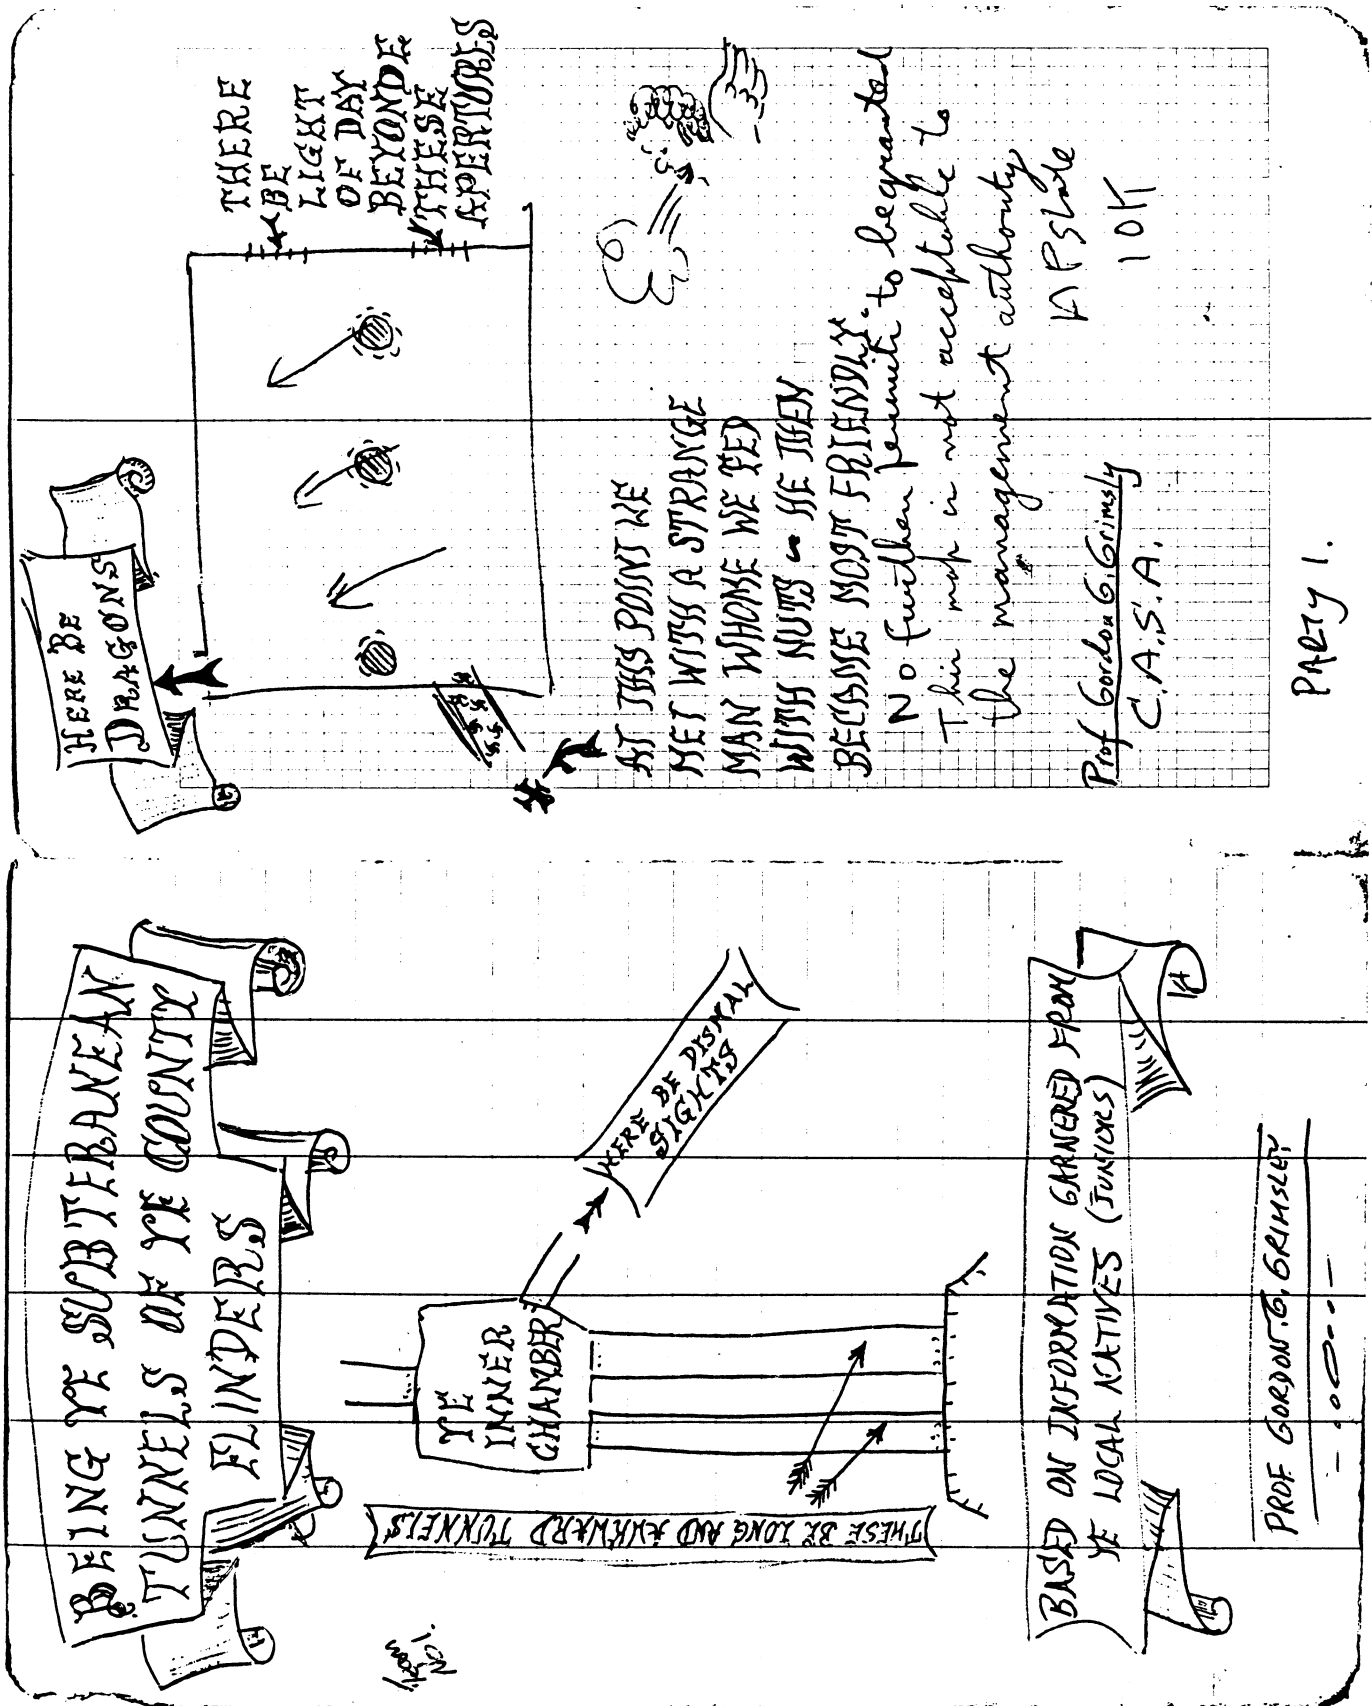 BEING YE SUBTERANEAN
TUNNELS OF YE COUNTY
FLINDERS
YE
INNER
CHAMBER
HERE BE DISMAL
SIGHTS
THESE BE LONG AND AWKWARD TUNNELS
BASED ON INFORMATION GARNERED FROM
YE LOCAL NATIVES (JUNIORS)
PROF GORDON.G.GRIMSLEY
from
No 1.
HERE BE
DRAGONS
THERE
BE
LIGHT
OF DAY
BEYONDE
THESE
APERTURES
AT THIS POINT WE
MET WITH A STRANGE
MAN WHOME WE FED
WITH NUTS - HE THEN
BECAME MOST FRIENDLY.
No further permits to be granted
This map is not acceptable to
the management authority
Prof Gordon G. Grimsly
C.A.S.A.
PARTY 1.